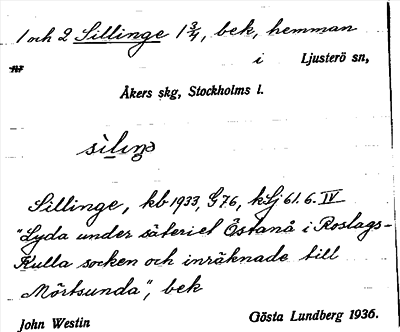 1 och 2 Sillinge 1 3/4, bek, hemman
nr i Ljusterö sn,
Åkers skg, Stockholms l.
Sillinge, kb 1933, G 76, kSj 61. 6. IV
"Lyda under säteriet Östanå i Roslags-
Kulla socken och inräknade till
Mörtsunda", bek
John Westin Gösta Lundberg 1936.